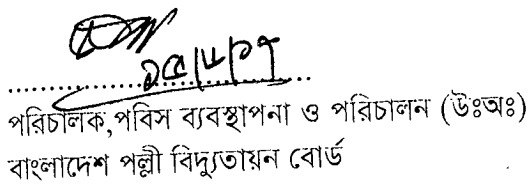 পরিচালক,পবিস ব্যবস্থাপনা ও পরিচালন (উঃঅঃ)
বাংলাদেশ পল্লী বিদ্যুতায়ন বোর্ড